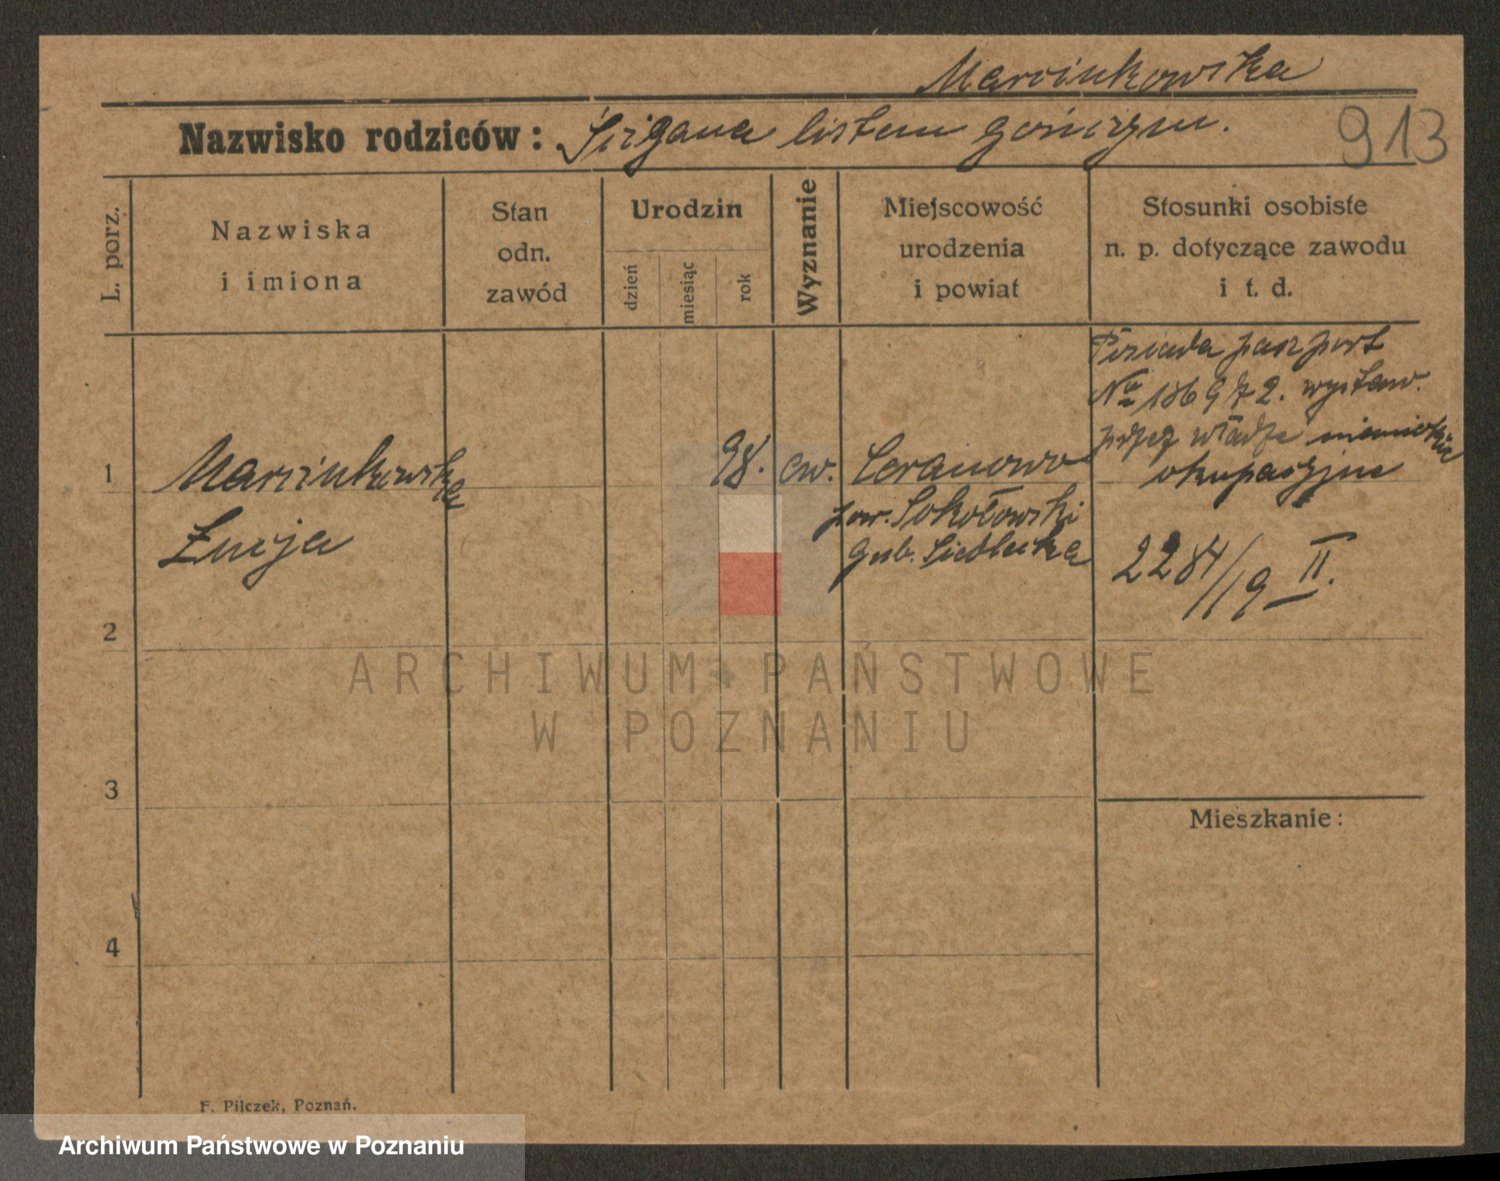 Marcinkowska
Nazwisko rodziców: Ścigana listem gończym.
913
L. porz.
Nazwiska
i imiona
Stan
odn.
zawód
Urodzin
dzień
miesiąc
rok
Wyznanie
Miejscowość
urodzenia
i powiat
Stosunki osobiste
n. p. dotyczące zawodu
i t. d.
Posiada paszport
No 186972. wystaw.
przez władze niemieckie
okupacyjne
1
Marcinkowska
Łucja
98.
ew.
Ceranowo
pow. Sokołowski
gub. Siedlecka
2284/19 II.
2
ARCHIWUM PAŃSTWOWE
W POZNANIU
3
Mieszkanie:
4
F. Pilczek, Poznań.
Archiwum Państwowe w Poznaniu